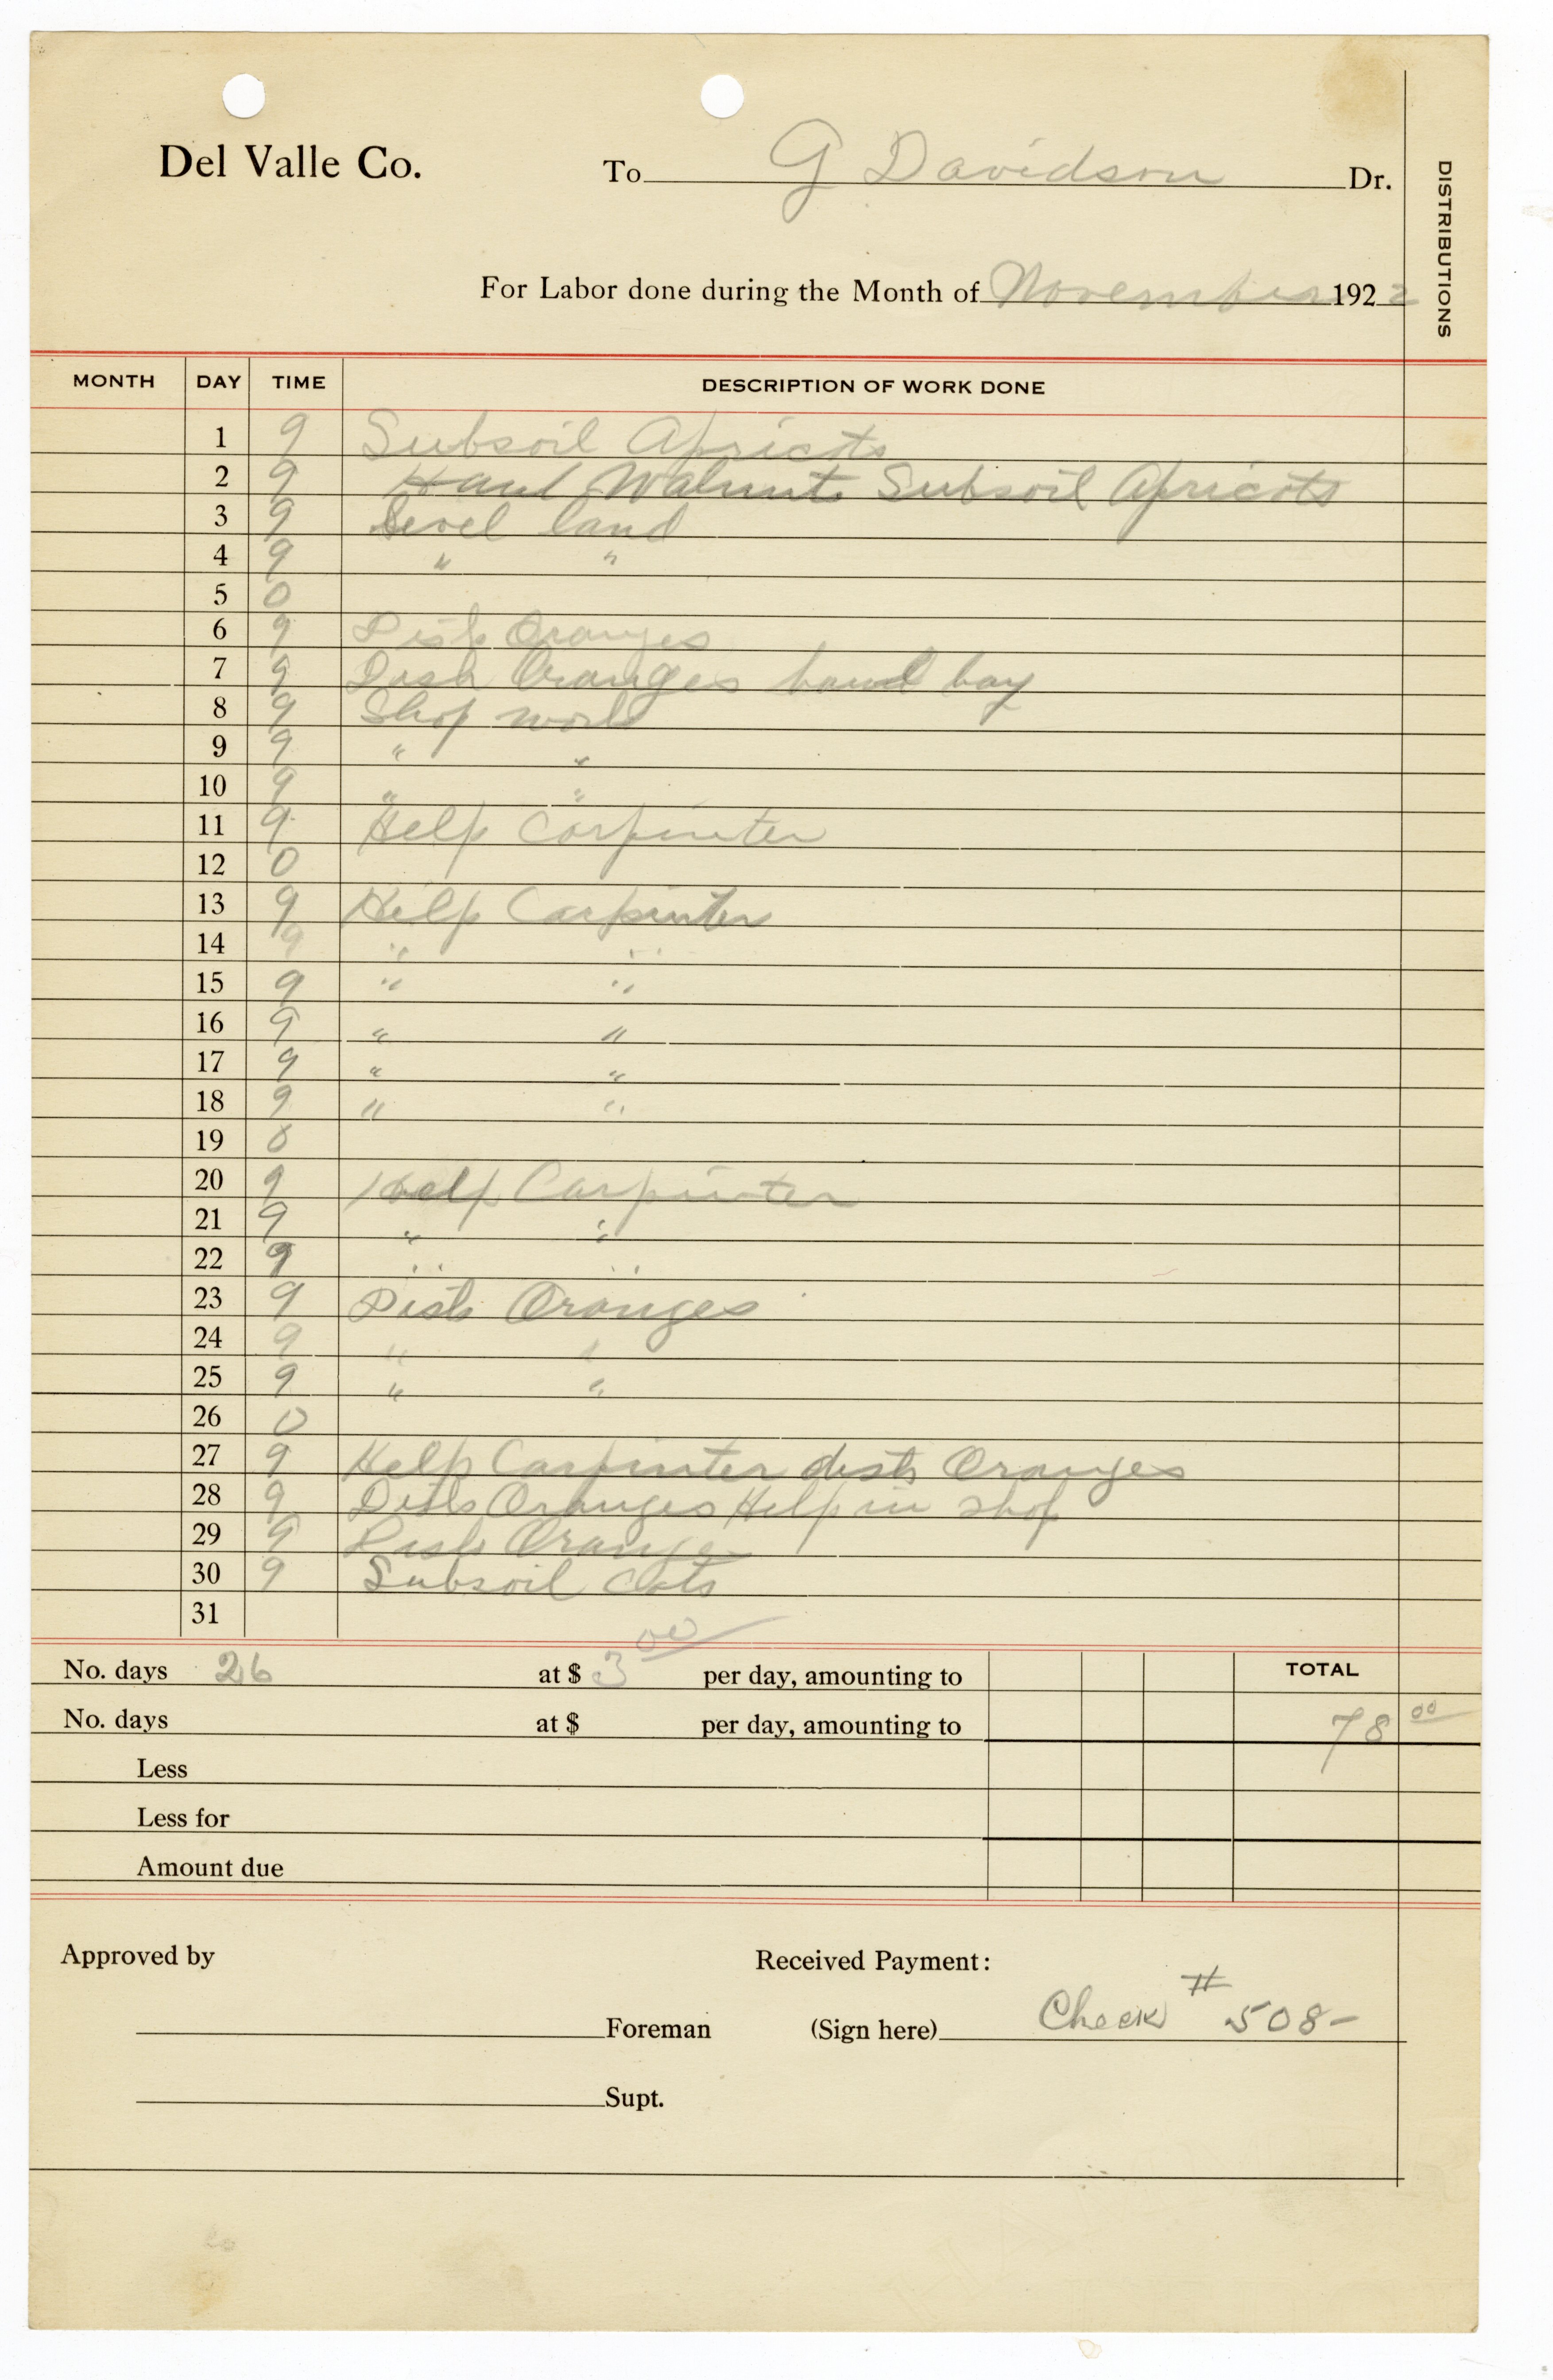 Del Valle Co. To G Davidson Dr.
DISTRIBUTIONS
For Labor done during the Month of November 1922
MONTH DAY TIME DESCRIPTION OF WORK DONE
1 9 Subsoil Apricots
2 9 Haul Walnuts Subsoil Apricots
3 9 Level land
4 9 " "
5 0
6 9 Disk Oranges
7 9 Disk Oranges haul hay
8 9 Shop work
9 9 " "
10 9 " "
11 9 Help Carpinter
12 0
13 9 Help Carpinter
14 9 " "
15 9 " "
16 9 " "
17 9 " "
18 9 " "
19 0
20 9 Help Carpinter
21 9 " "
22 9 " "
23 9 Disk Oranges
24 9 " "
25 9 " "
26 0
27 9 Help Carpinter disk Oranges
28 9 Disk Oranges Help in shop
29 9 Disk Orange
30 9 Subsoil
31
No. days 26 at $ 3 00 per day, amounting to TOTAL
No. days at $ per day, amounting to 78 00
Less
Less for
Amount due
Approved by Received Payment:
Foreman (Sign here) Check # 508-
Supt.